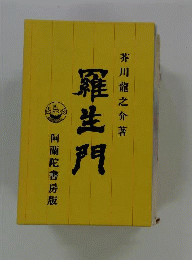 芥川龍之介著
羅生門
阿蘭陀書房版